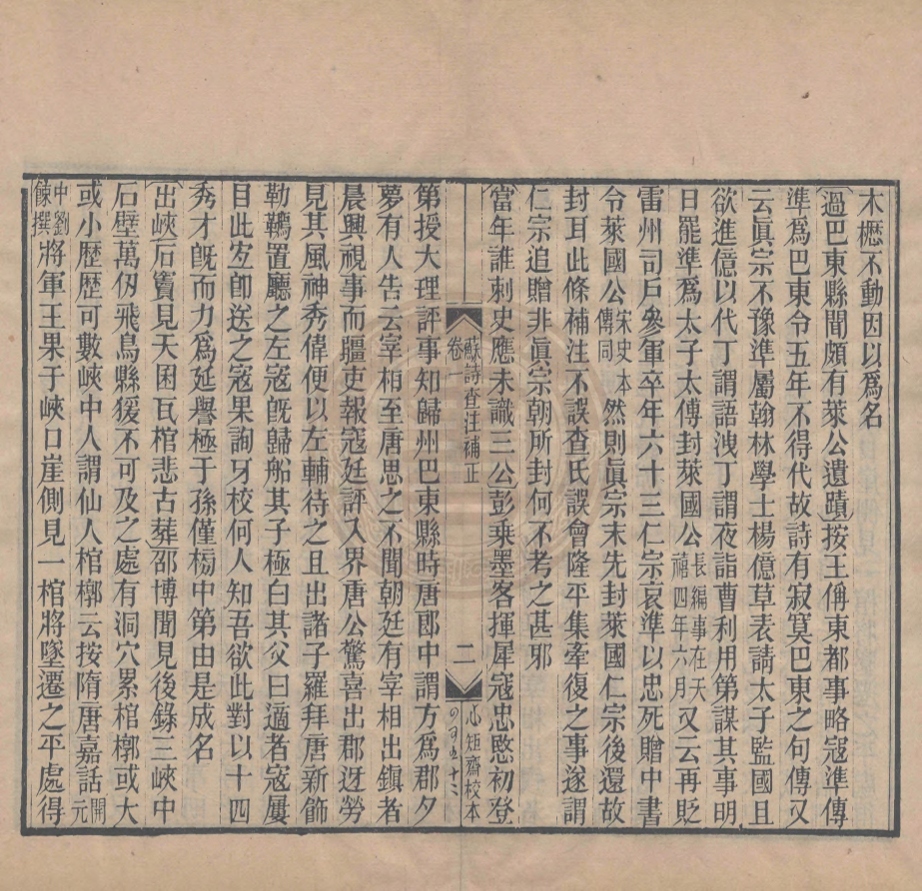 木櫪不動因以爲名
過巴東縣聞頗有萊公遺蹟按王偁東都事略寇準傳
準爲巴東令五年不得代故詩有寂寞巴東之句傳又
云眞宗不豫準屬翰林學士楊億草表請太子監國且
欲進億以代丁謂語洩丁謂夜詣曹利用第謀其事明
日罷準爲太子太傅封萊國公長編事在天禧四年六月又云再貶
雷州司戶參軍卒年六十三仁宗哀準以忠死贈中書
令萊國公宋史本傳同然則眞宗末先封萊國仁宗後還故
封耳此條補注不誤查氏誤會隆平集牽復之事遂謂
仁宗追贈非眞宗朝所封何不考之甚邪
當年誰刺史應未識三公彭乘墨客揮犀寇忠愍初登
蘇詩查注補正
卷一
二
心矩齋校本
第授大理評事知歸州巴東縣時唐郎中謂方爲郡夕
夢有人告云宰相至唐思之不聞朝廷有宰相出鎭者
晨興視事而疆吏報寇廷評入界唐公驚喜出郡迓勞
見其風神秀偉便以左輔待之且出諸子羅拜唐新飾
勒鞴置廳之左寇旣歸船其子極白其父曰適者寇屢
目此宜卽送之寇果詢牙校何人知吾欲此對以十四
秀才旣而力爲延譽極于孫僅榜中第由是成名
出峽石竇見天囷瓦棺悲古葬邵博聞見後錄三峽中
石壁萬仞飛鳥縣猨不可及之處有洞穴累棺槨或大
或小歷歷可數峽中人謂仙人棺槨云按隋唐嘉話開元
中劉餗撰將軍王果于峽口崖側見一棺將墜遷之平處得